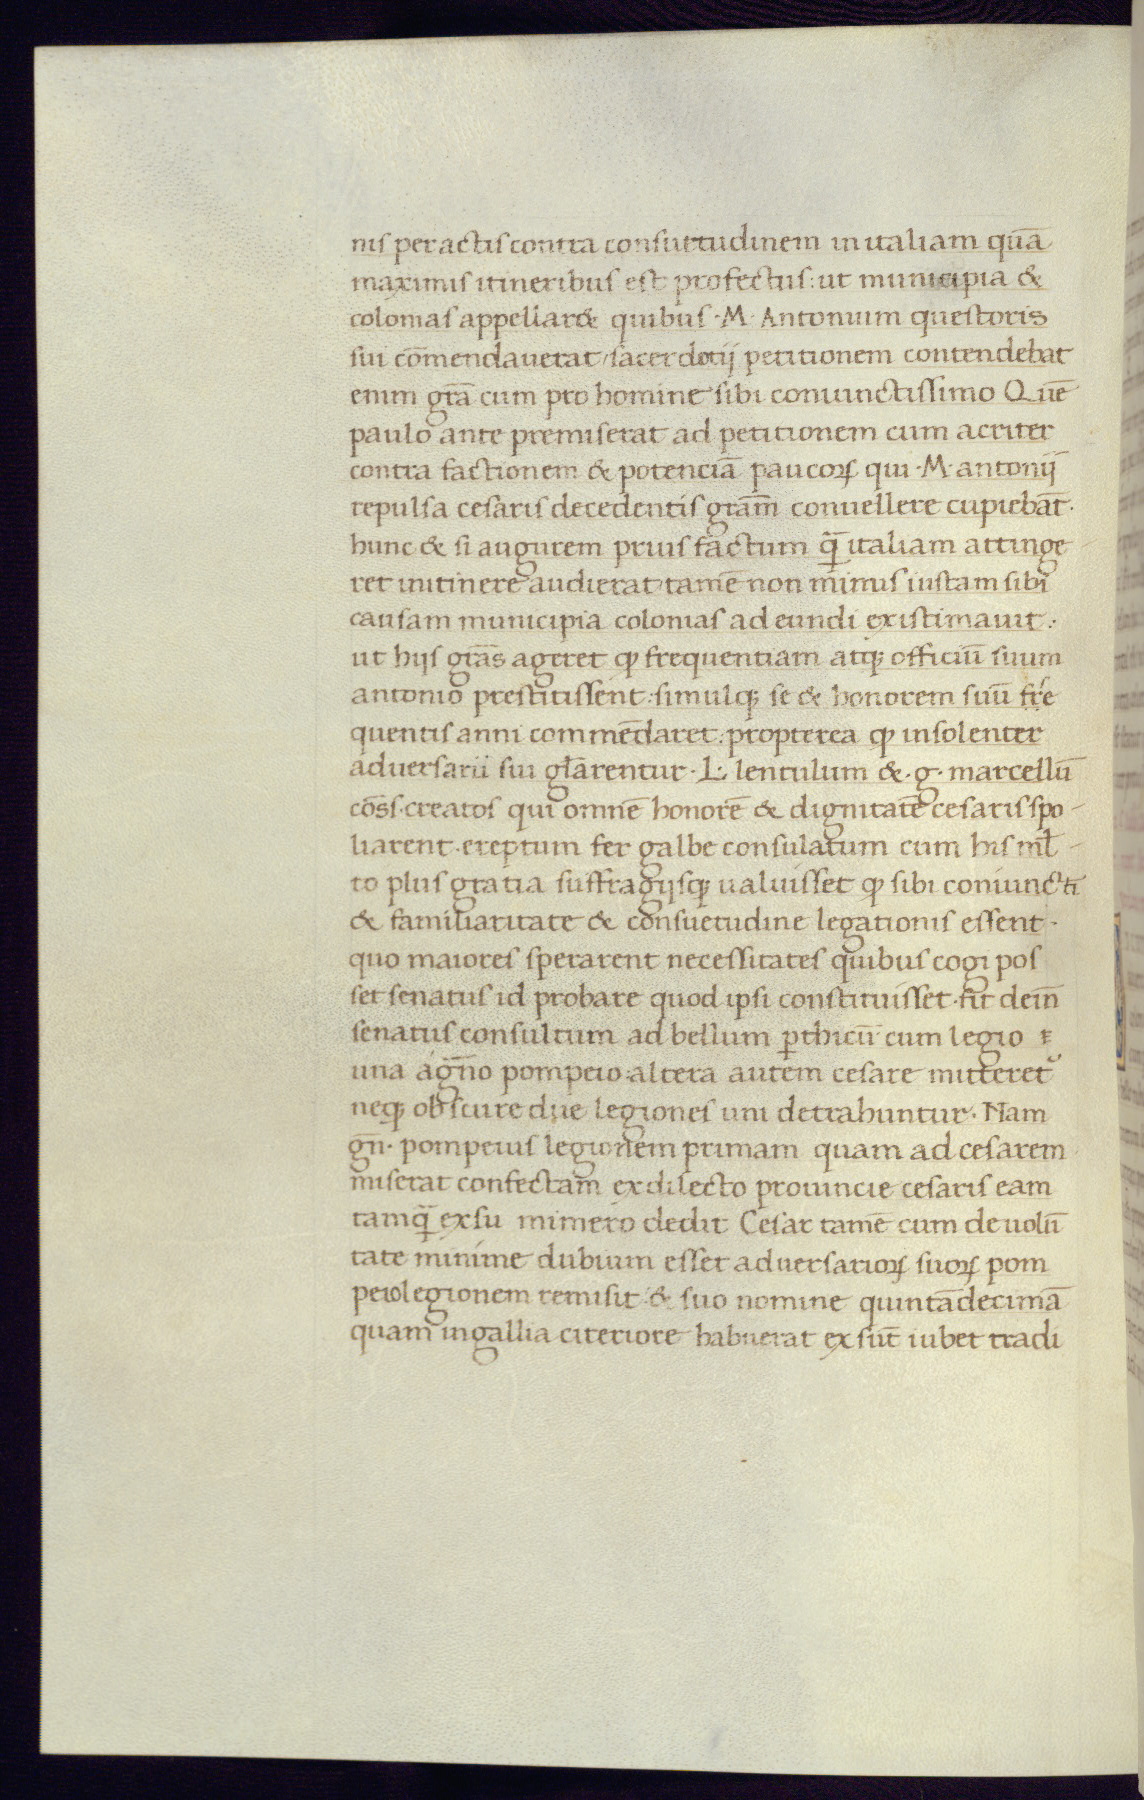 nis peractis contra consuetudinem in italiam quā
maximis itineribus est profectus: ut municipia &
colonias appellar& quibus · M · Antonium questoris
sui cōmendauerat / sacerdotij petitionem contendebat
enim grā cum pro homine sibi coniunctissimo Quē
paulo ante premiserat ad petitionem cum acriter
contra factionem & potenciā paucoꝝ qui · M · antonij
repulsa cesaris decedentis grām̄ conuellere cupiebāt ·
hunc & si augurem prius factum q̄ italiam attinge
ret initinere audierat tamē non minus iustam sibi
causam municipia colonias adeundi existimauit :·
ut hijs grās ageret ꝙ frequentiam atqꝫ officiū suum
antonio prestitissent : simulqꝫ se & honorem suū fre
quentis anni commēdaret : propterea ꝙ insolenter
aduersarii sui glārentur · L · lentulum & · g · marcellū
cōss · creatos qui omnē honorē & dignitatē cesaris spo -
liarent · ereptum ser galbe consulatum cum his ml̄ -
to plus gratia suffragijsqꝫ ualuisset ꝙ sibi coniuncti
& familiaritate & consuetudine legationis essent ·
quo maiores sperarent necessitates quibus cogi pos
set senatus id probare quod ipsi constituisset · fit dein̄
senatus consultum ad bellum ꝑthicū cum legio
una agn̄o pompeio altera autem cesare mitteret᷒
neqꝫ obscure due legiones uni detrahuntur · Nam
gn̄ · pompeius legionem primam quam ad cesarem
miserat confectam exdilecto prouincie cesaris eam
tamq̄ exsu mimero dedit Cesar tamē cum de uolū
tate minime dubium esset aduersarioꝝ suoꝝ pom
peio legionem remisit & suo nomine quintādecimā
quam in gallia citeriore habuerat ex sūt iubet tradi